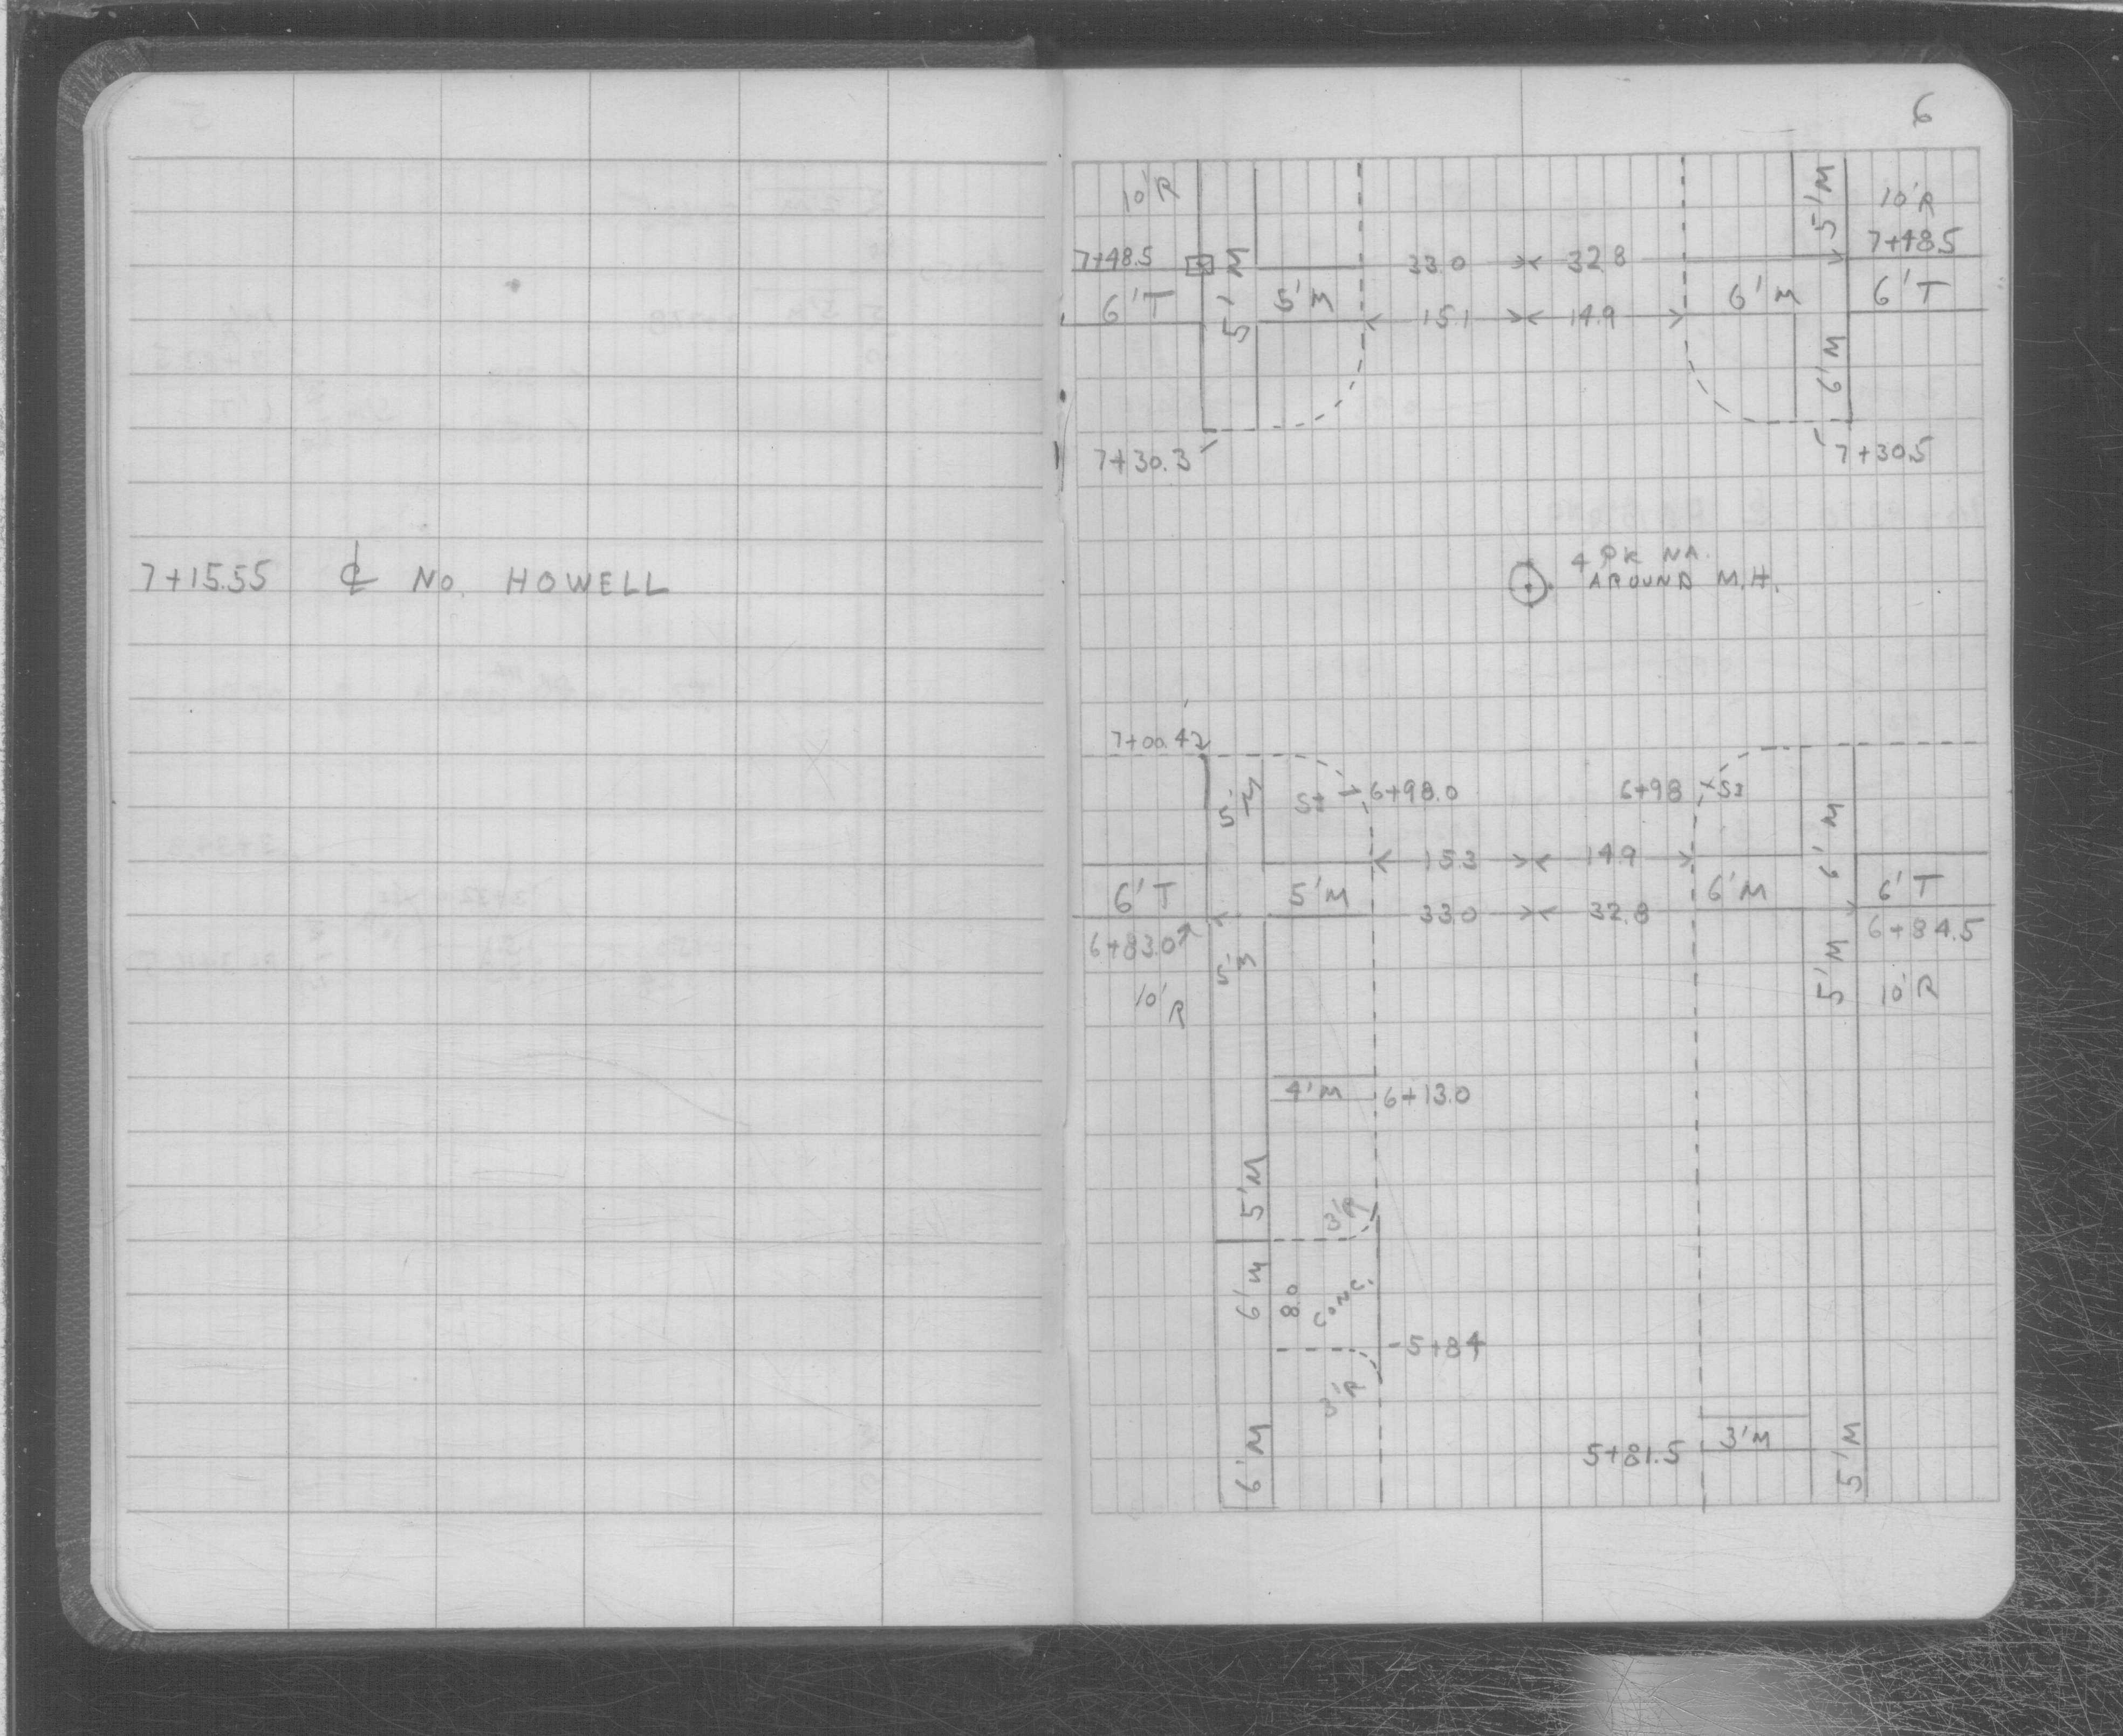 6
10'R
5'M
10'R
7+48.5
7+48.5
5'M
33.0
32.8
6'T
5'M
6'M
6'T
15.1
14.9
6'M
7+30.3
7+30.5
4 PK NA.
AROUND M.H.
7+15.55 ℄ No. HOWELL
7+00.42
5'M
6+98.0
6+98
6'M
15.3
14.9
6'T
5'M
6'M
6'T
33.0
32.8
6+83.0
6+84.5
5'M
5'M
10'R
10'R
4'M
6+13.0
5'M
3'R
6'M
8.0
CONC.
5+84
3'R
6'M
5+81.5
3'M
5'M